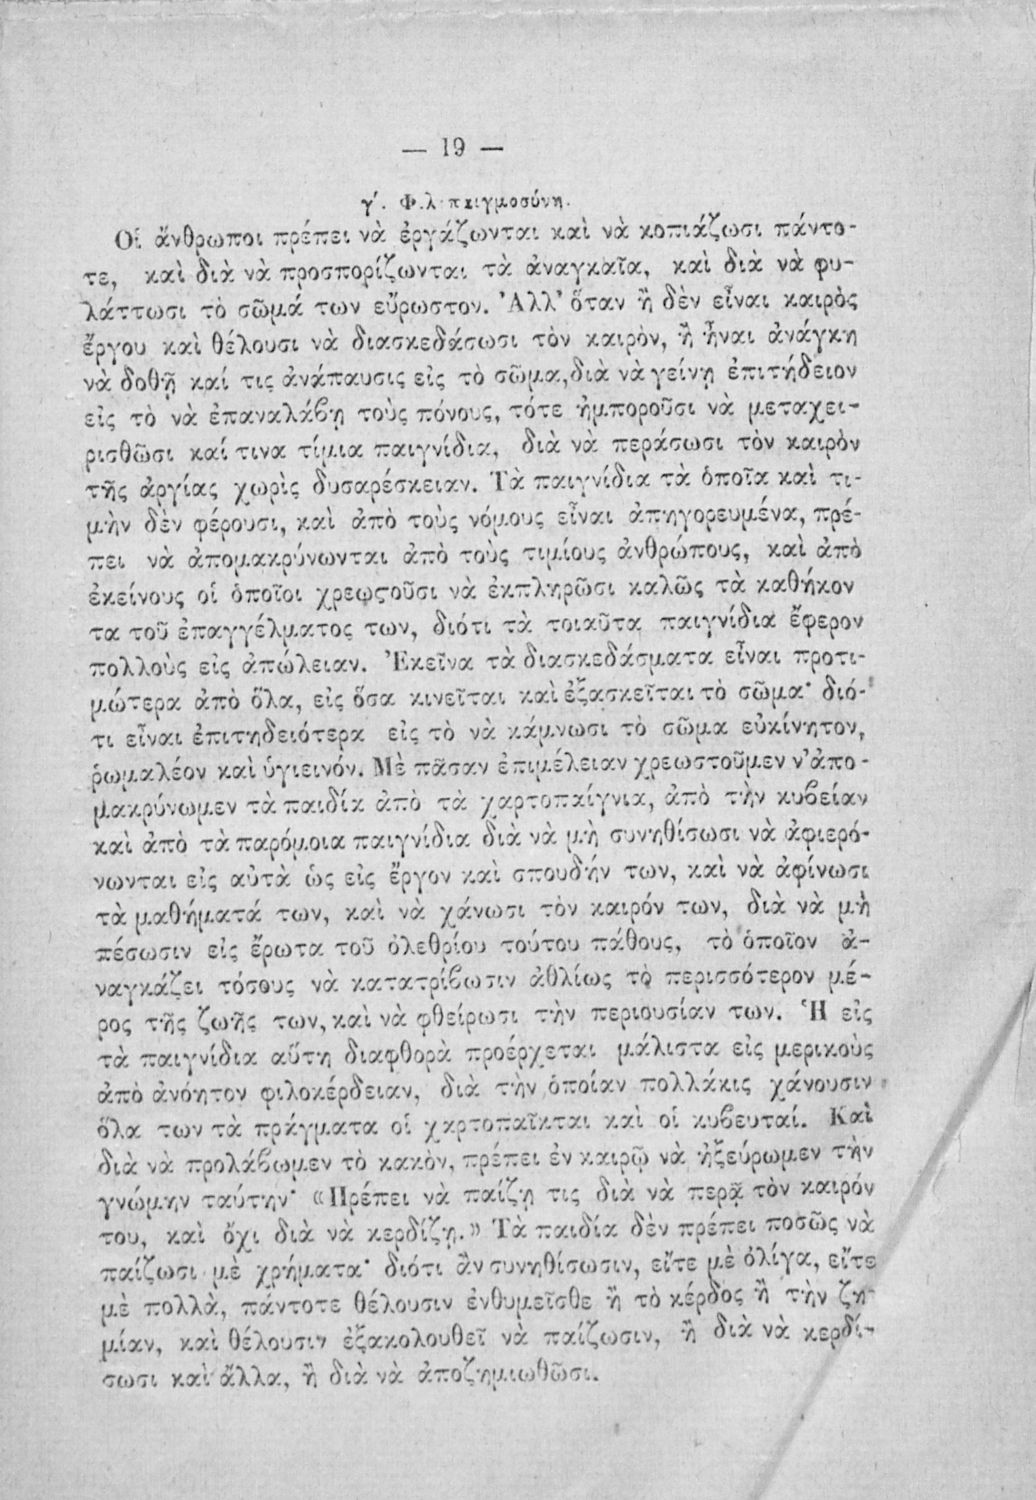 — 19 —
γ΄. Φ.λ παιγμοσύνη.
Οἱ ἄνθρωποι πρέπει νὰ ἐργάζωνται καὶ νὰ κοπιάζωσι πάντο-
τε, καὶ διὰ νὰ προσπορίζωνται τὰ ἀναγκαῖα, καὶ διὰ νὰ φυ-
λάττωσι τὸ σῶμά των εὔρωστον. Ἀλλ’ ὅταν ἢ δὲν εἶναι καιρὸς
ἔργου καὶ θέλουσι νὰ διασκεδάσωσι τὸν καιρὸν, ἢ ἦναι ἀνάγκη
νὰ δοθῇ καί τις ἀνάπαυσις εἰς τὸ σῶμα, διὰ νὰ γείνῃ ἐπιτήδειον
εἰς τὸ νὰ ἐπαναλάβῃ τοὺς πόνους, τότε ἠμποροῦσι νὰ μεταχει-
ρισθῶσι καί τινα τίμια παιγνίδια, διὰ νὰ περάσωσι τὸν καιρὸν
τῆς ἀργίας χωρὶς δυσαρέσκειαν. Τὰ παιγνίδια τὰ ὁποῖα καὶ τι-
μὴν δὲν φέρουσι, καὶ ἀπὸ τοὺς νόμους εἶναι ἀπηγορευμένα, πρέ-
πει νὰ ἀπομακρύνωνται ἀπὸ τοὺς τιμίους ἀνθρώπους, καὶ ἀπὸ
ἐκείνους οἱ ὁποῖοι χρεωϛοῦσι νὰ ἐκπληρῶσι καλῶς τὰ καθήκον
τα τοῦ ἐπαγγέλματος των, διότι τὰ τοιαῦτα παιγνίδια ἔφερον
πολλοὺς εἰς ἀπώλειαν. Ἐκεῖνα τὰ διασκεδάσματα εἶναι προτι-
μώτερα ἀπὸ ὅλα, εἰς ὅσα κινεῖται καὶ ἐξασκεῖται τὸ σῶμα· διό-
τι εἶναι ἐπιτηδειότερα εἰς τὸ νὰ κάμνωσι τὸ σῶμα εὐκίνητον,
ῥωμαλέον καὶ ὑγιεινόν. Μὲ πᾶσαν ἐπιμέλειαν χρεωστοῦμεν ν’ ἀπο-
μακρύνωμεν τὰ παιδία ἀπὸ τὰ χαρτοπαίγνια, ἀπὸ τὴν κυβείαν
καὶ ἀπὸ τὰ παρόμοια παιγνίδια διὰ νὰ μὴ συνηθίσωσι νὰ ἀφιερό-
νωνται εἰς αὐτὰ ὡς εἰς ἔργον καὶ σπουδήν των, καὶ νὰ ἀφίνωσι
τὰ μαθήματά των, καὶ νὰ χάνωσι τὸν καιρόν των, διὰ νὰ μὴ
πέσωσιν εἰς ἔρωτα τοῦ ὀλεθρίου τούτου πάθους, τὸ ὁποῖον ἀ-
ναγκάζει τόσους νὰ κατατρίβωσιν ἀθλίως τὸ περισσότερον μέ-
ρος τῆς ζωῆς των, καὶ νὰ φθείρωσι τὴν περιουσίαν των. Ἡ εἰς
τὰ παιγνίδια αὕτη διαφθορὰ προέρχεται μάλιστα εἰς μερικοὺς
ἀπὸ ἀνόητον φιλοκέρδειαν, διὰ τὴν ὁποίαν πολλάκις χάνουσιν
ὅλα των τὰ πράγματα οἱ χαρτοπαῖκται καὶ οἱ κυβευταί. Καὶ
διὰ νὰ προλάβωμεν τὸ κακὸν, πρέπει ἐν καιρῷ νὰ ἠξεύρωμεν τὴν
γνώμην ταύτην· «Πρέπει νὰ παίζῃ τις διὰ νὰ περᾷ τὸν καιρόν
του, καὶ ὄχι διὰ νὰ κερδίζῃ.» Τὰ παιδία δὲν πρέπει ποσῶς νὰ
παίζωσι μὲ χρήματα· διότι ἂν συνηθίσωσιν, εἴτε μὲ ὀλίγα, εἴτε
μὲ πολλὰ, πάντοτε θέλουσιν ἐνθυμεῖσθε ἢ τὸ κέρδος ἢ τὴν ζη-
μίαν, καὶ θέλουσιν ἐξακολουθεῖ νὰ παίζωσιν, ἢ διὰ νὰ κερδί-
σωσι καὶ ἄλλα, ἢ διὰ νὰ ἀποζημιωθῶσι.